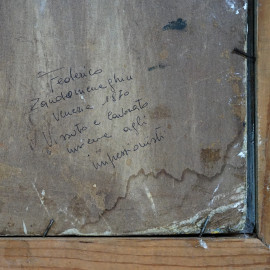 Federico
Zandomeneghi
Venezia 1840
Vissuto e lavorato
insieme agli
impressionisti